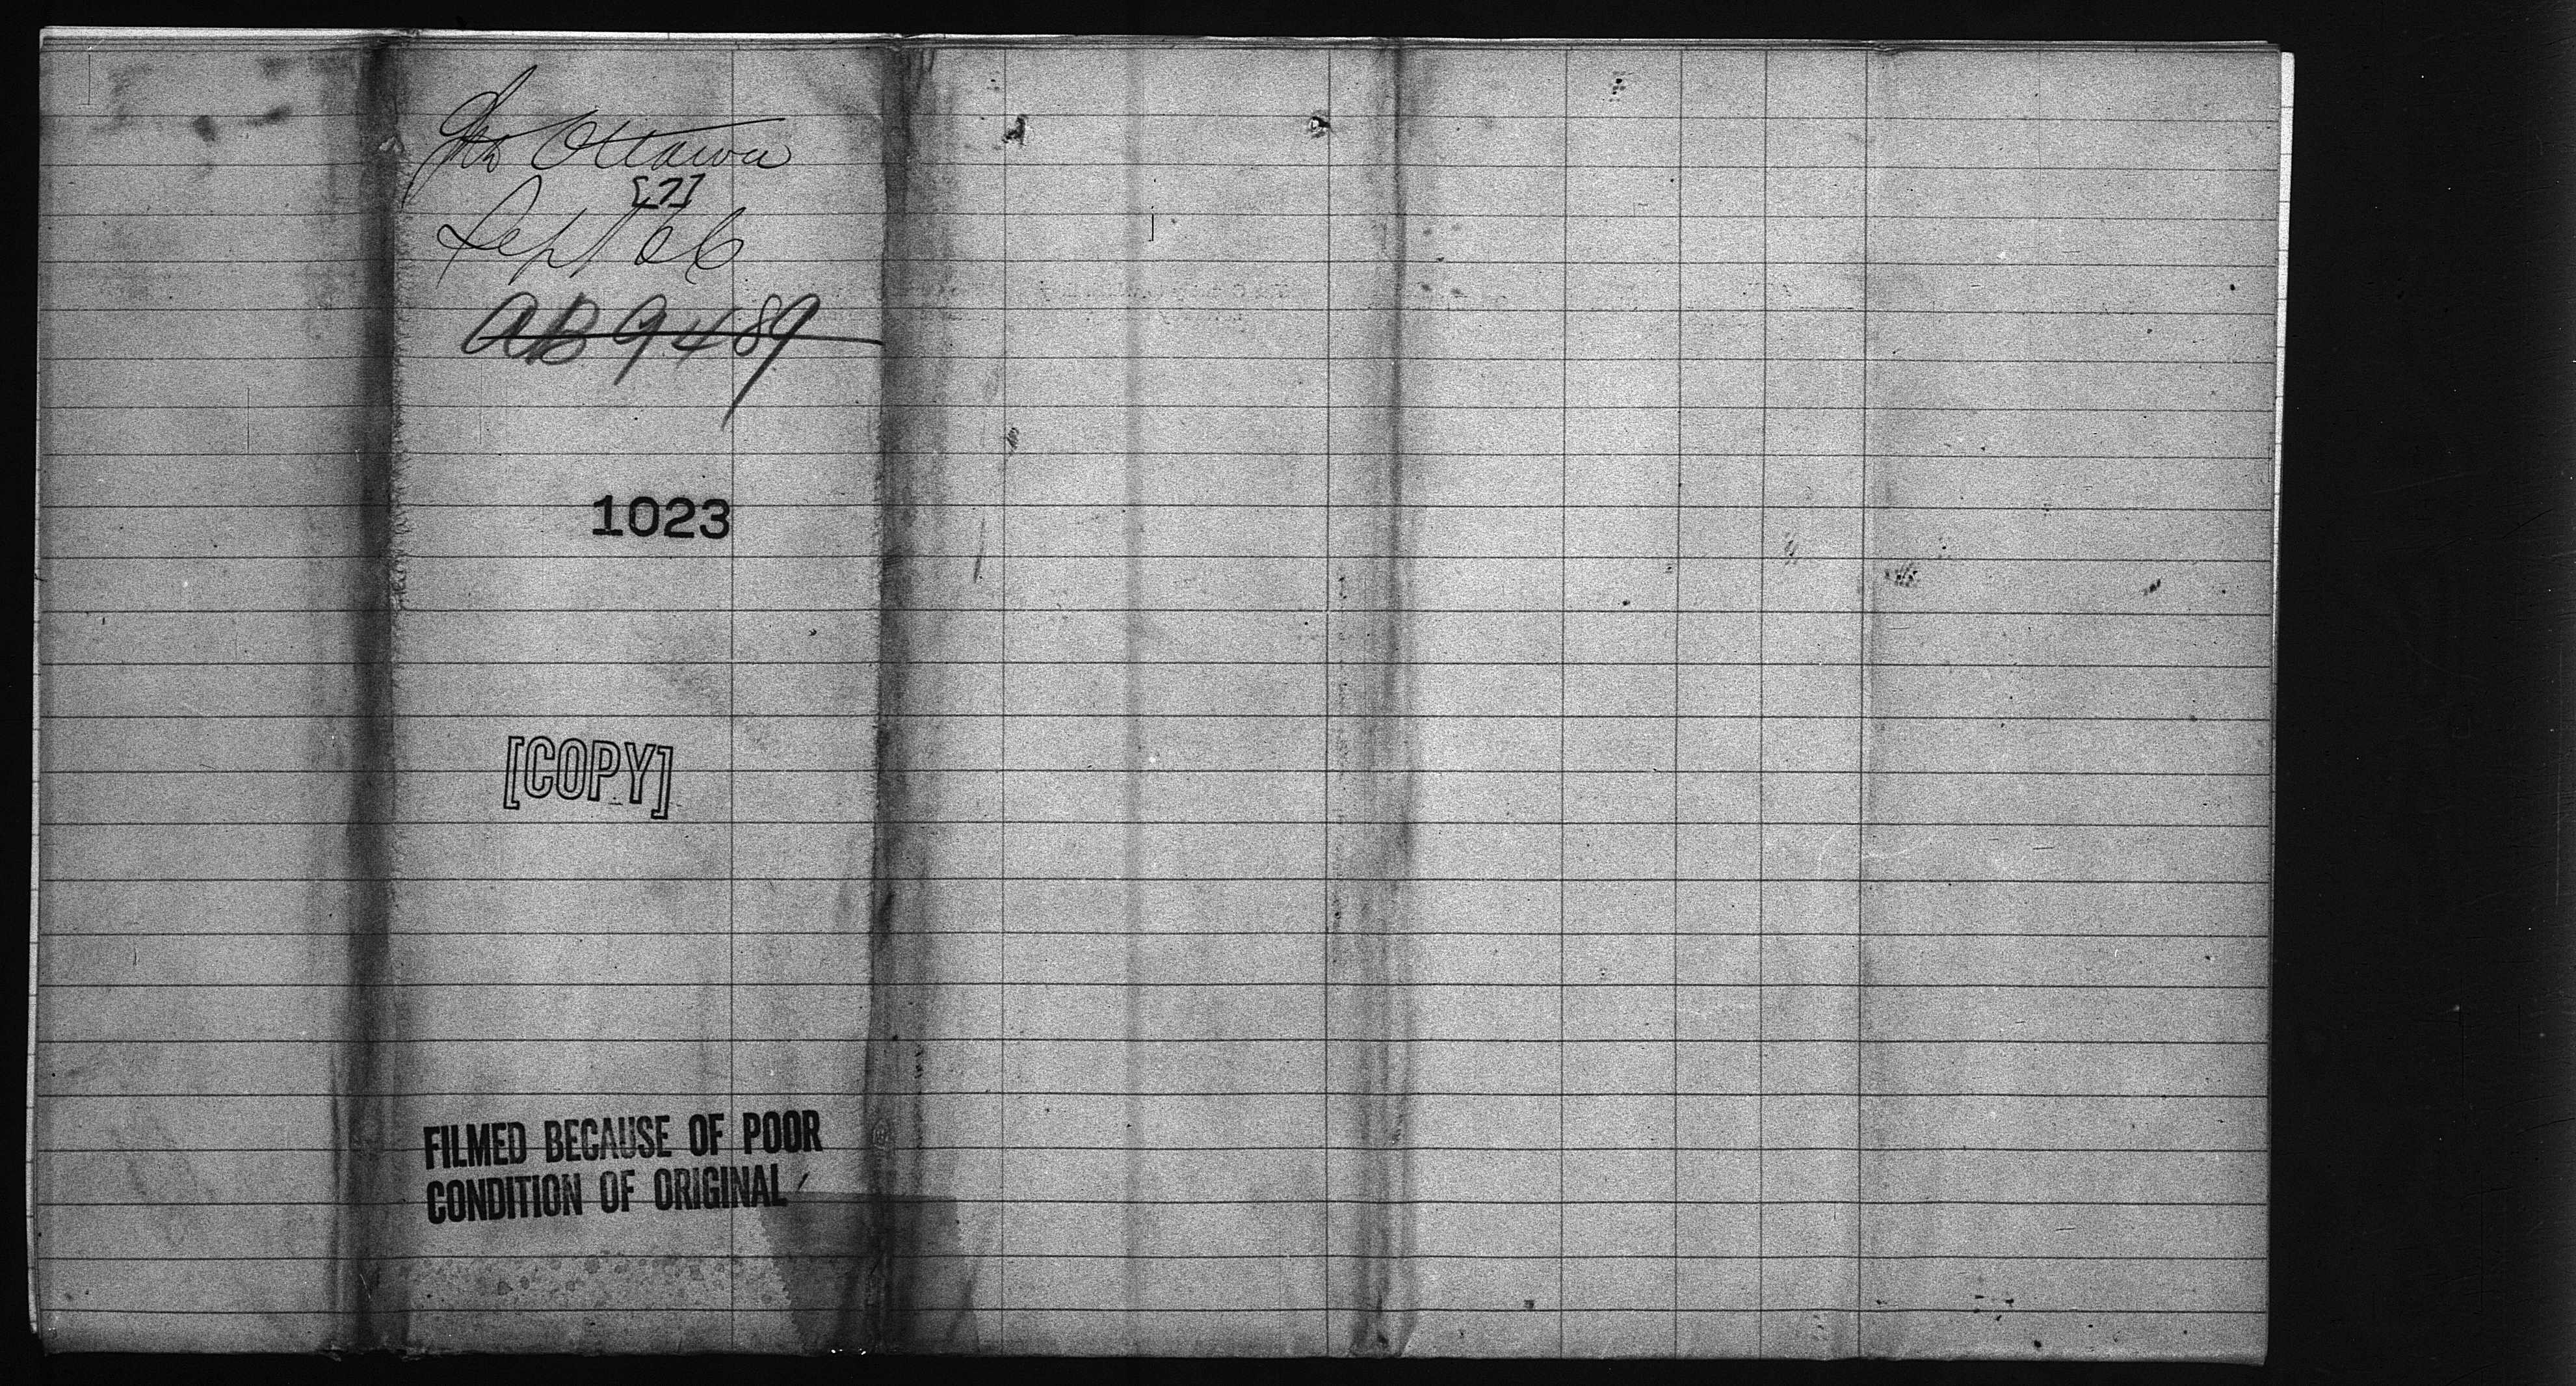 Str Ottawa
[7]
Sept 66
AB 9489
1023
[COPY]
FILMED BECAUSE OF POOR
CONDITION OF ORIGINAL